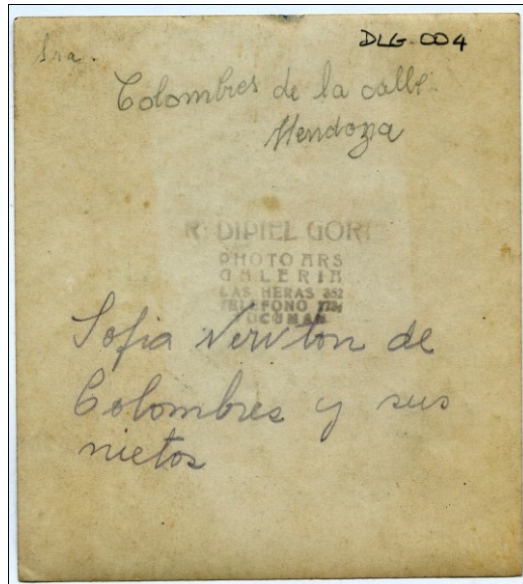 DLG-004
Sra.
Colombres de la calle
Mendoza
R. DIPIEL GORI
PHOTO ARS
GALERIA
LAS HERAS 352
TELEFONO
TUCUMAN
Sofia Newton de
Colombres y sus
nietos